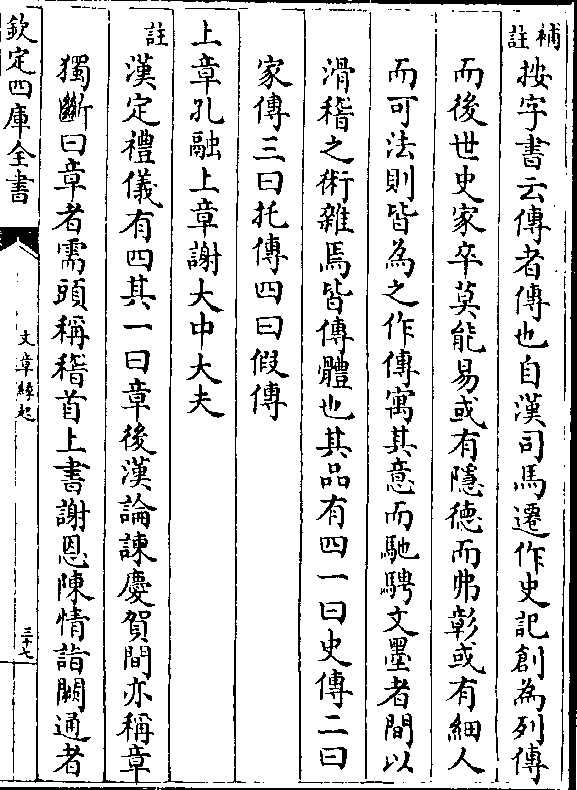 補註
按字書云傳者傳也自漢司馬遷作史記創為列傳
而後世史家卒莫能易或有隱德而弗彰或有細人
而可法則皆為之作傳寓其意而馳騁文墨者間以
滑稽之術雜焉皆傳體也其品有四一曰史傳二曰
家傳三曰托傳四曰假傳
上章孔融上章謝大中大夫
註
漢定禮儀有四其一曰章後漢論諫慶賀間亦稱章
獨斷曰章者需頭稱稽首上書謝恩陳情詣闕通者
欽定四庫全書
文章緣起
三十七